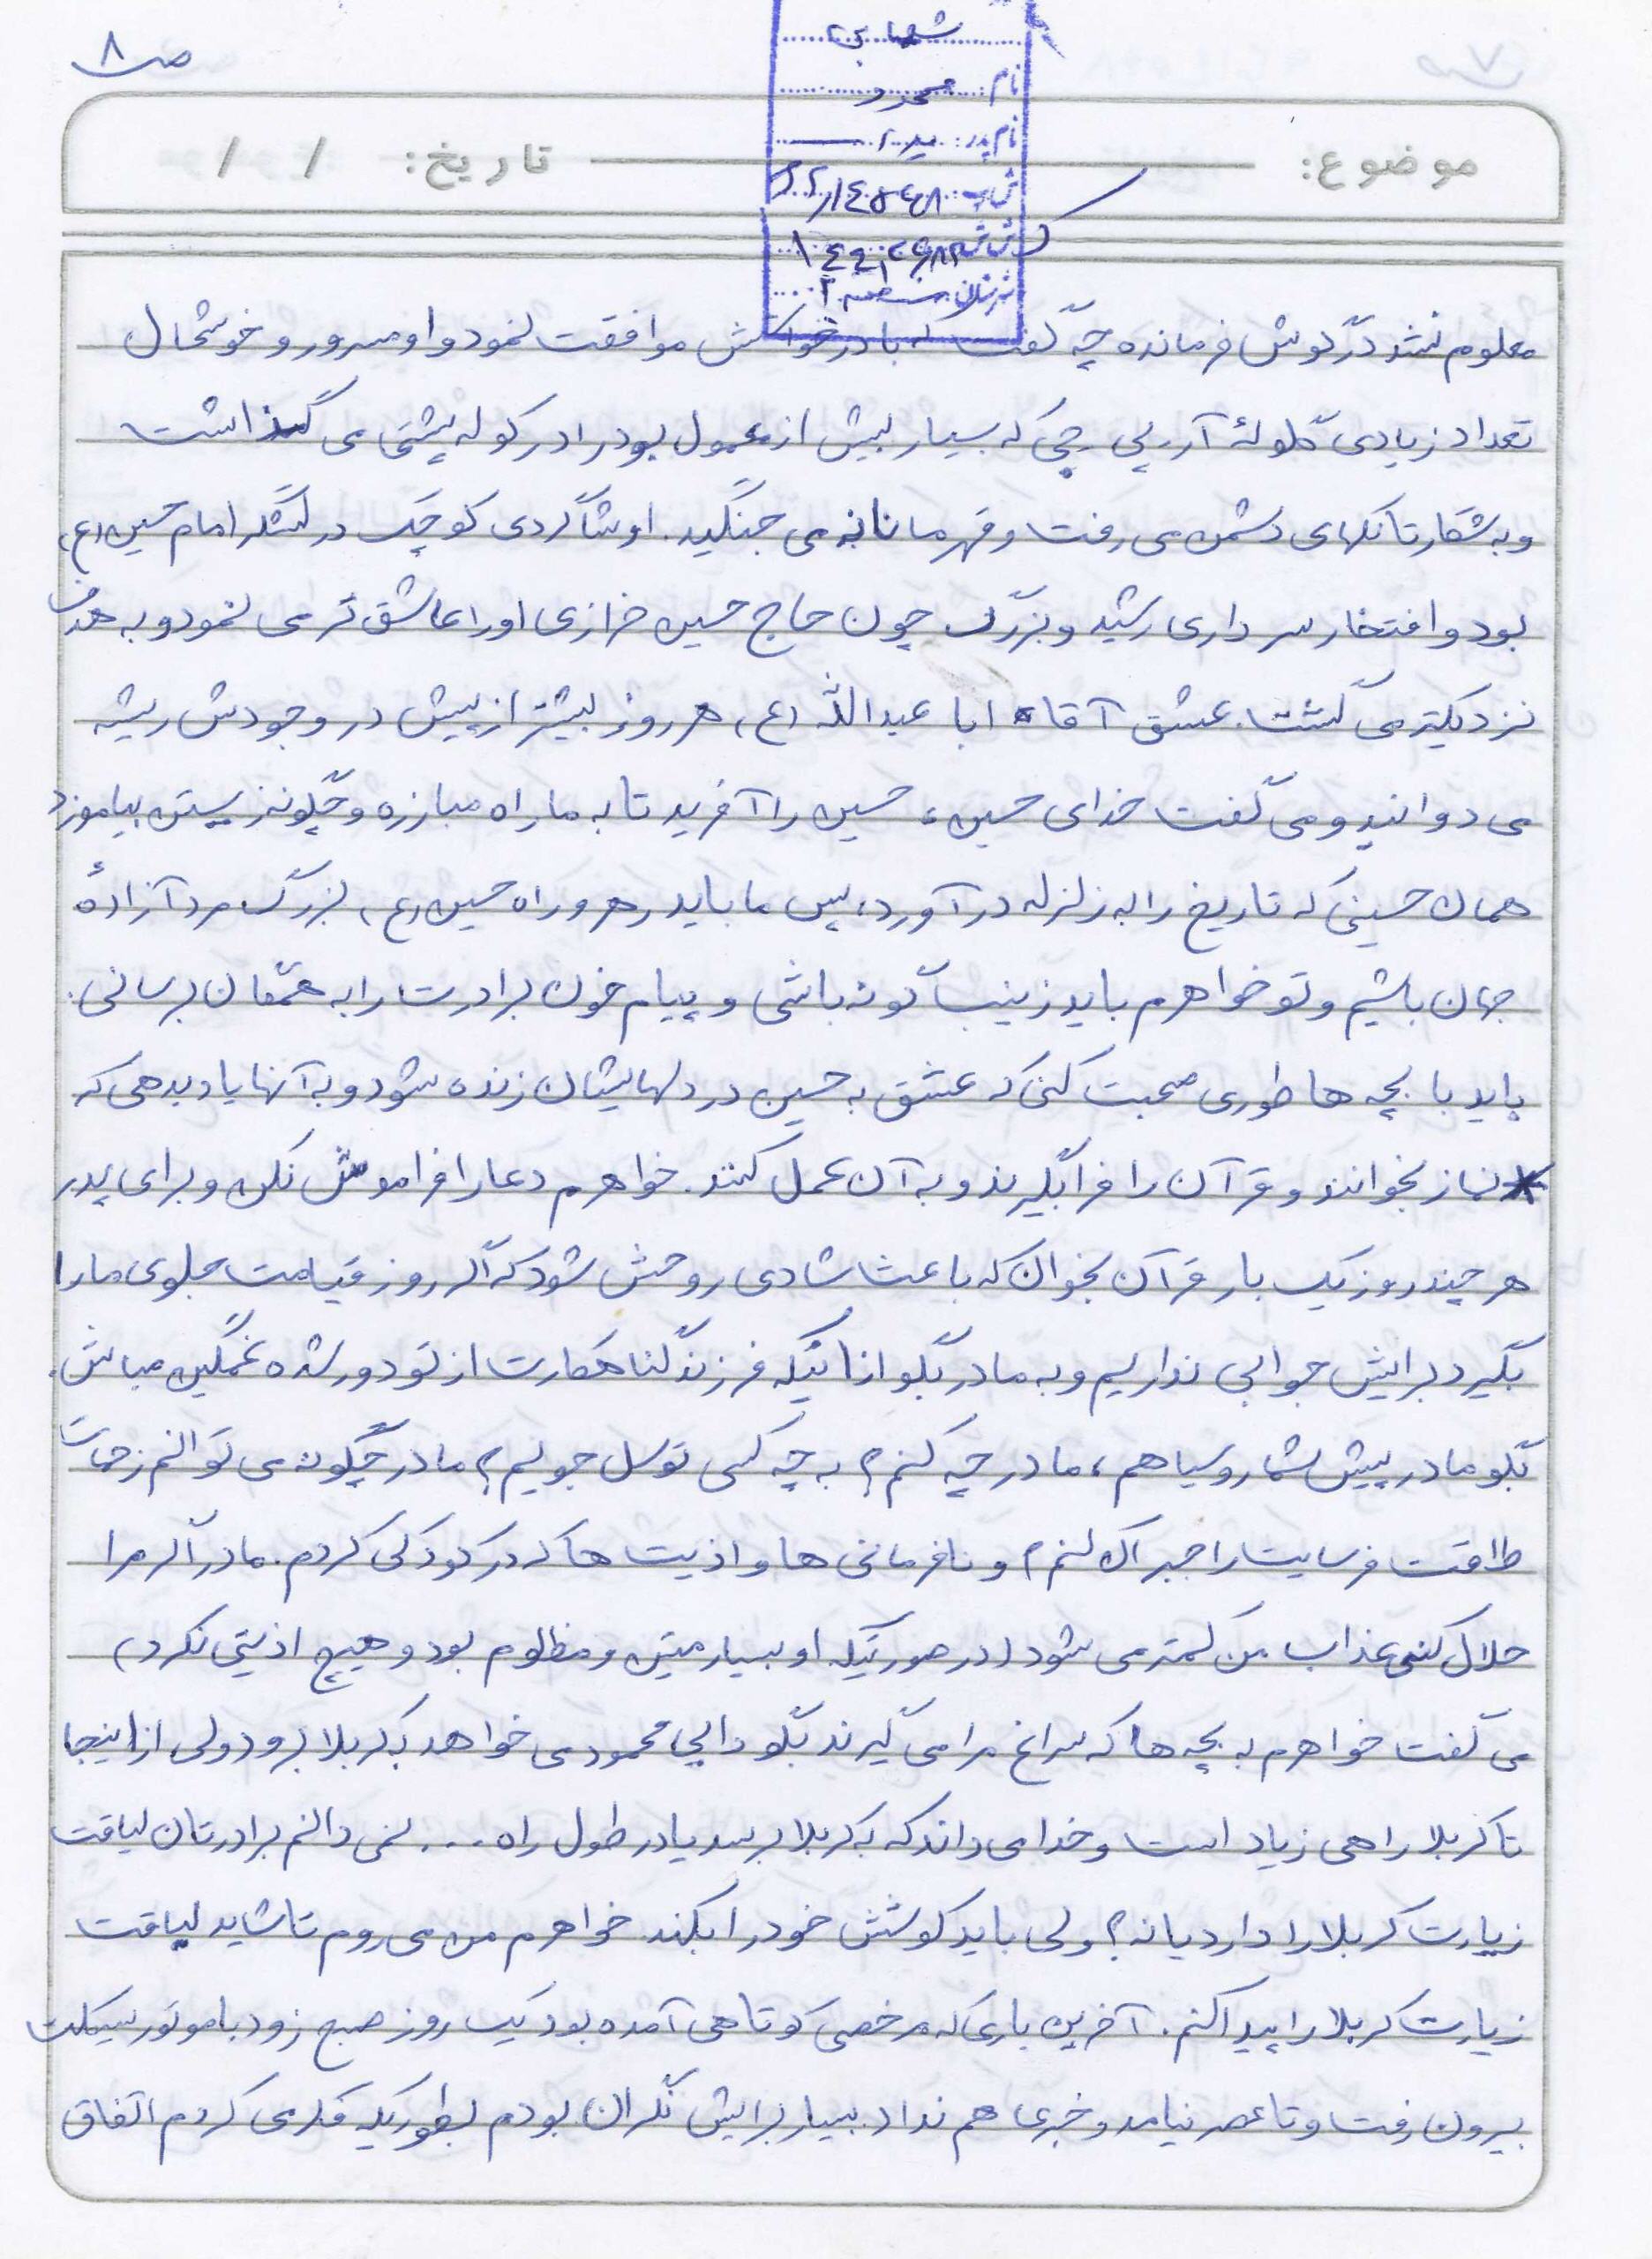 ص ۸
شهابی
نام: محمود
نام پدر:
موضوع: تاریخ: / /
معلوم نشد در گوش فرمانده چه گفت که با درخواستش موافقت نمود و او مسرور و خوشحال
تعداد زیادی گلولهٔ آر پی جی که بسیار بیش از معمول بود را در کوله پشتی می گذاشت
و به شکار تانکهای دشمن می رفت و قهرمانانه می جنگید. او شاگردی کوچک در لشگر امام حسین (ع)
بود و افتخار سرداری رشید و بزرگ چون حاج حسین خرازی او را عاشق تر می نمود و به هدف
نزدیکتر می گشت. عشق آقا ابا عبدالله (ع) هر روز بیشتر از پیش در وجودش ریشه
می دوانید و می گفت خدای حسین، حسین را آفرید تا به ما راه مبارزه و چگونه زیستن بیاموزد
همان حسینی که تاریخ را به زلزله درآورد، پس ما باید رهرو راه حسین (ع)، بزرگ مرد آزادهٔ
جهان باشیم و تو خواهرم باید زینب گونه باشی و پیام خون برادرت را به همگان برسانی.
باید با بچه ها طوری صحبت کنی که عشق به حسین در دلهایشان زنده شود و به آنها یاد بدهی که
نماز بخوانند و قرآن را فرا بگیرند و به آن عمل کنند. خواهرم دعا را فراموش نکن و برای پدر
هر چند روز یک بار قرآن بخوان که باعث شادی روحش شود که اگر روز قیامت جلوی ما را
بگیرد برایش جوابی نداریم و به مادر بگو از اینکه فرزند گناهکارت از تو دور شده غمگین مباش.
بگو مادر پیش شما روسیاهم، مادر چه کنم؟ به چه کسی توسل جویم؟ مادر چگونه می توانم زحمات
طاقت فرسایت را جبران کنم؟ و نافرمانی ها و اذیت ها که در کودکی کردم. مادر اگر مرا
حلال کنی عذاب من کمتر می شود (در صورتیکه او بسیار متین و مظلوم بود و هیچ اذیتی نکرد)
می گفت خواهرم به بچه ها که سراغ مرا می گیرند بگو دایی محمود می خواهد به کربلا برود ولی از اینجا
تا کربلا راهی زیاد است و خدا می داند که به کربلا برسد یا در طول راه ... نمی دانم برادرتان لیاقت
زیارت کربلا را دارد یا نه؟ ولی باید کوشش خود را بکند خواهرم من می روم تا شاید لیاقت
زیارت کربلا را پیدا کنم. آخرین باری که مرخصی کوتاهی آمده بود یک روز صبح زود با موتور سیکلت
بیرون رفت و تا عصر نیامد و خبری هم نداد بسیار برایش نگران بودم بطوریکه فکر می کردم اتفاق